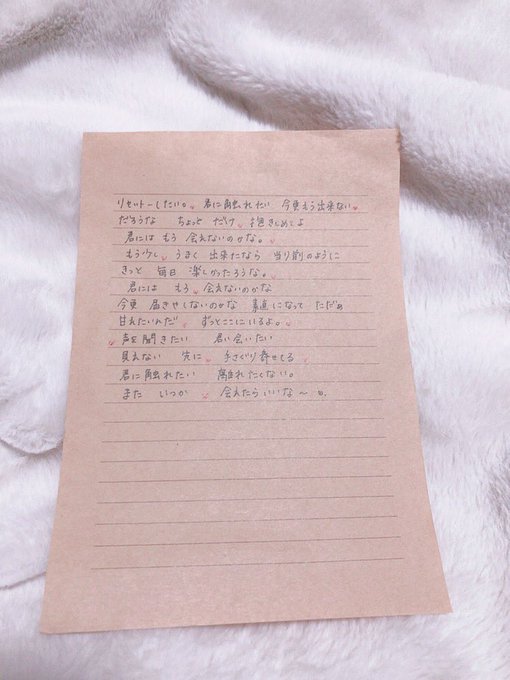 リセットしたい。君に触れたい 今更もう出来ない
だろうな ちょっと だけ 抱きしめてよ
君には もう 会えないのかな。
もう少し うまく 出来たなら 当り前のように
きっと 毎日 楽しかったろうな。
君には もう 会えないのかな
今更 届きやしないのかな 素直になって ただぁ
甘えたいんだ ずっとここにいるよ。
声を聞きたい 君に会いたい
見えない 穴に 手さぐり寄せてる
君に触れたい 離れたくない。
また いつか 会えたらいいな〜